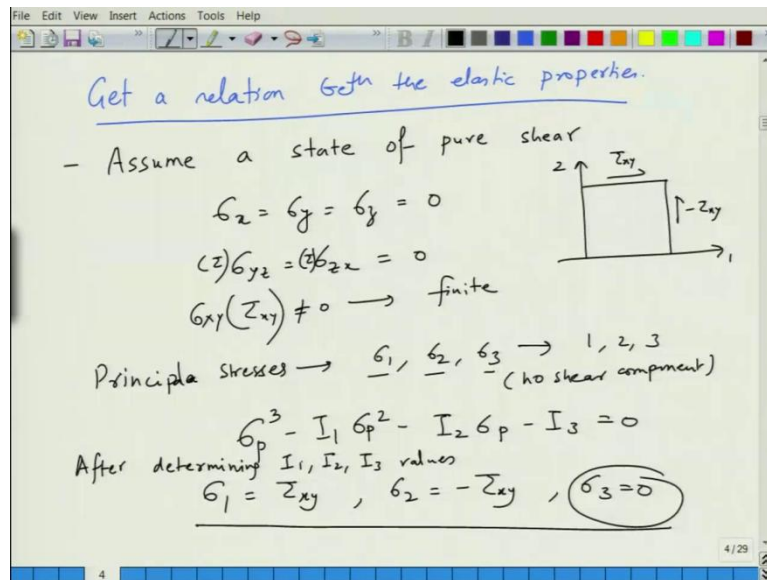 File Edit View Insert Actions Tools Help
Get a relation betn the elastic properties.
- Assume a state of pure shear
σx = σy = σz = 0
(τ)σyz = (τ)σzx = 0
σxy(τxy) ≠ 0 → finite
2 τxy
-τxy
1
Principla stresses → σ1, σ2, σ3 → 1, 2, 3
(no shear component)
σp³ - I1 σp² - I2 σp - I3 = 0
After determining I1, I2, I3 values
σ1 = τxy , σ2 = -τxy , σ3 = 0
4/29
4